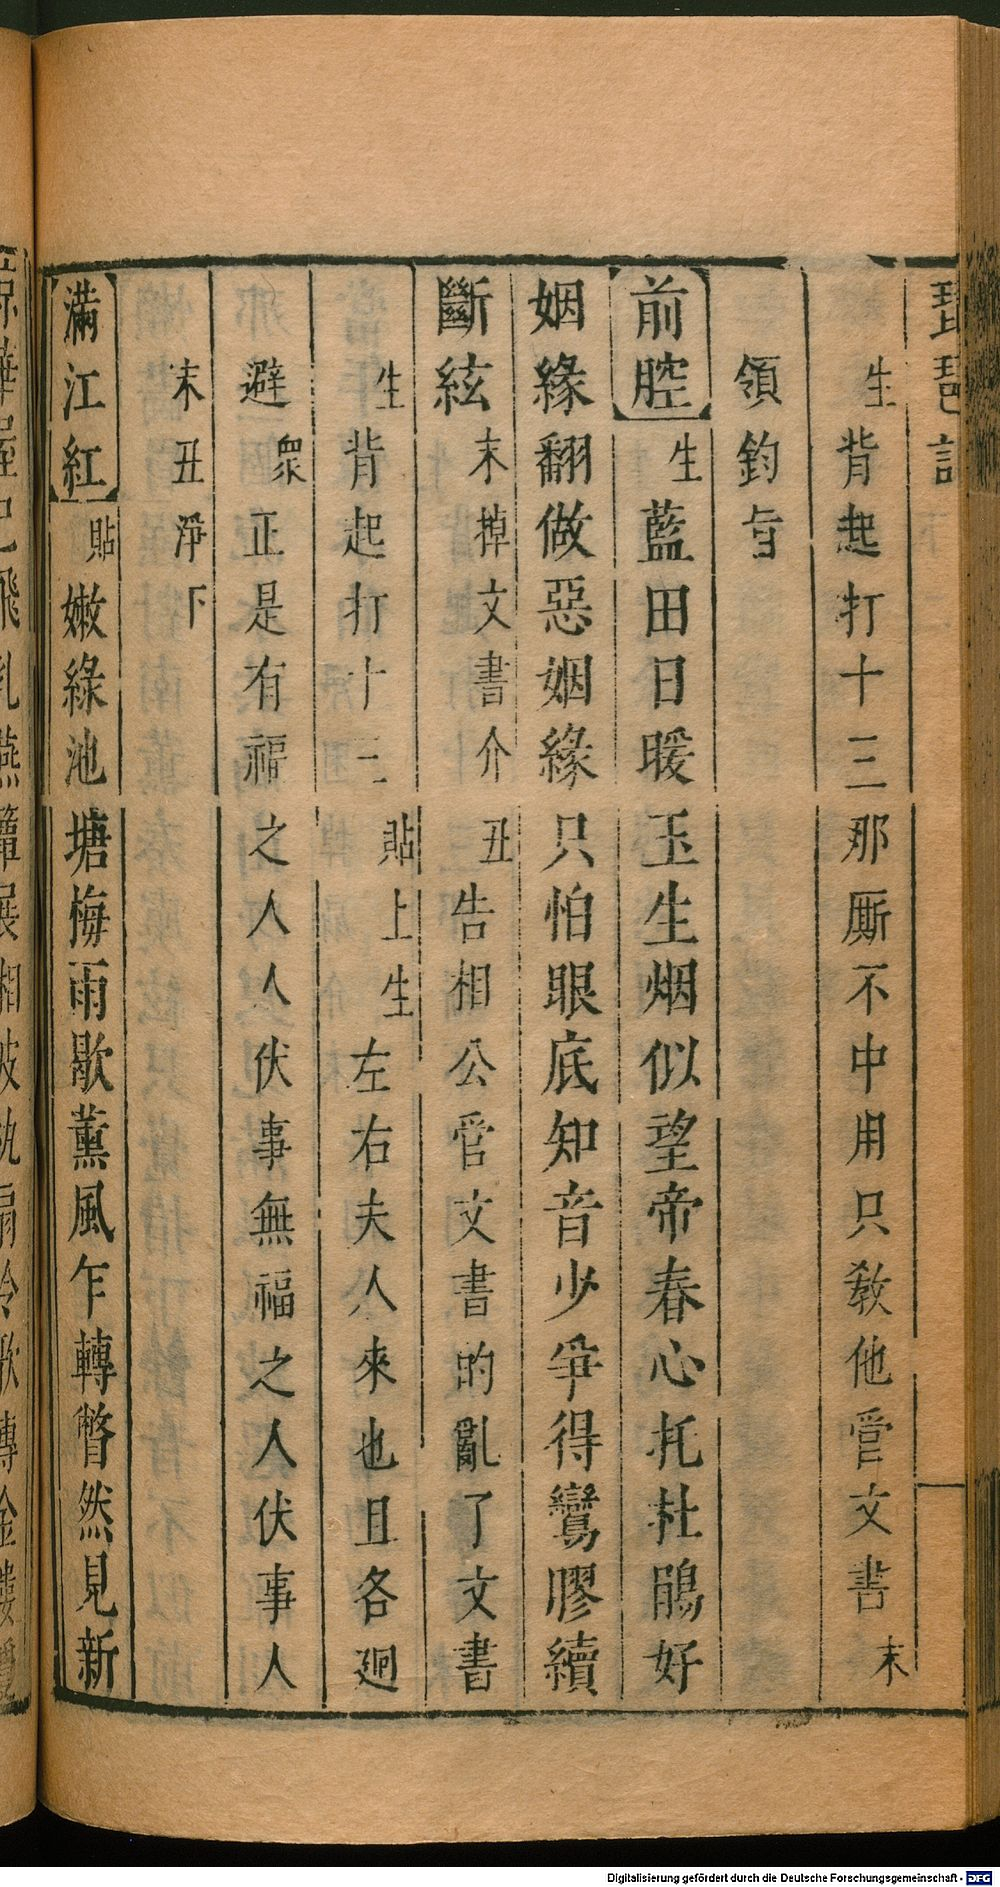 琵琶記
生背起打十三那厮不中用只敎他晉文書末
領鈞㫖
前腔生藍田日暖玉生烟似望帝春心托杜鵑好
姻緣翻做惡姻緣只怕眼底知音少爭得鸞膠續
斷絃末掉文書介丑告相公管文書的亂了文書
生背起打十三貼上生左右夫人來也且各廻
避衆正是有福之人人伏事無福之人伏事人
末丑淨下
滿江紅貼嫩綠池塘梅雨歇薰風乍轉瞥然見新
飛乳燕簾展相
Digitalisierung gefördert durch die Deutsche Forschungsgemeinschaft - DFG